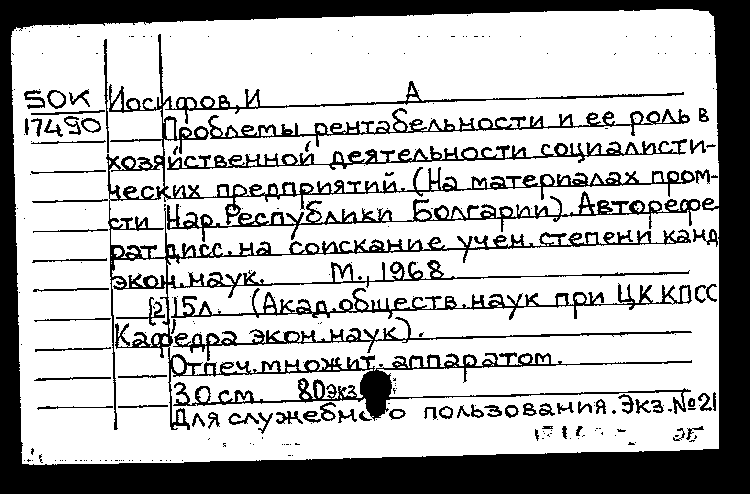 50К Иосифов, И А
17490 Проблемы рентабельности и ее роль в
хозяйственной деятельности социалисти-
ческих предприятий. (На материалах пром-
сти Нар. Республики Болгарии). Авторефе
рат дисс. на соискание учен. степени канд
экон. наук. М., 1968.
[2] 15л. (Акад. обществ. наук при ЦК КПСС
Кафедра экон. наук).
Отпеч. множит. аппаратом.
30 см. 80 экз.
Для служебного пользования. Экз. №21
ЭБ